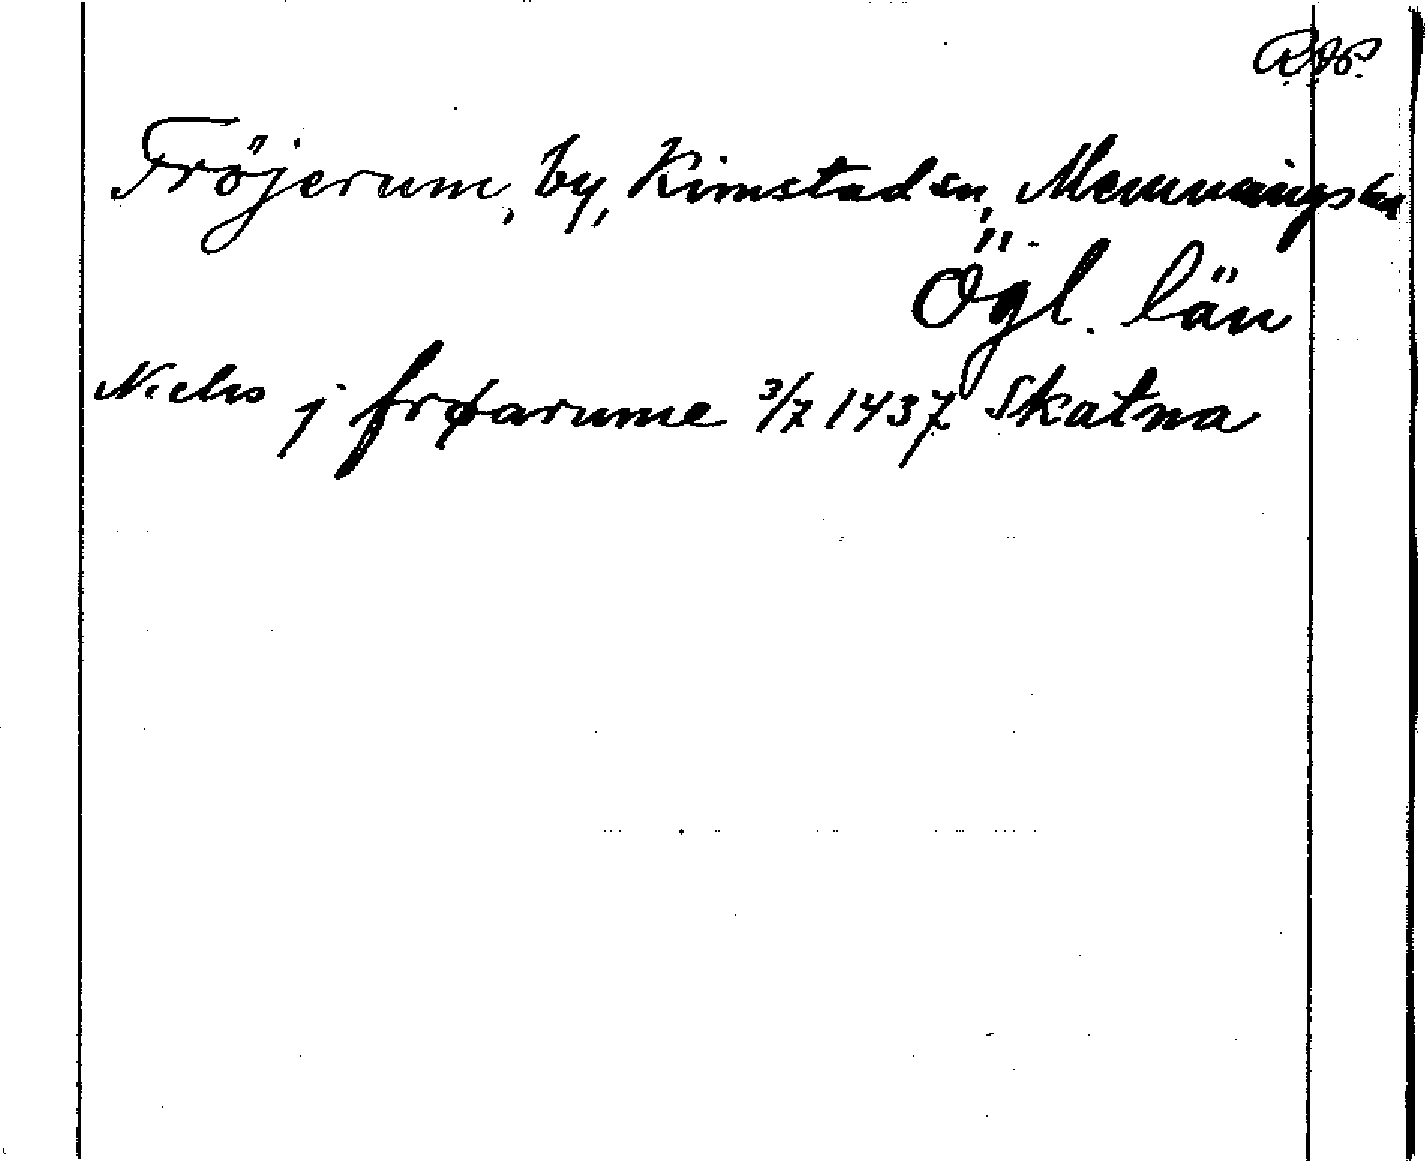 Fröjerum, by, Kimstad sn, Memmings hd
Ögl. län
j frøarume 3/7 1437 Skatna